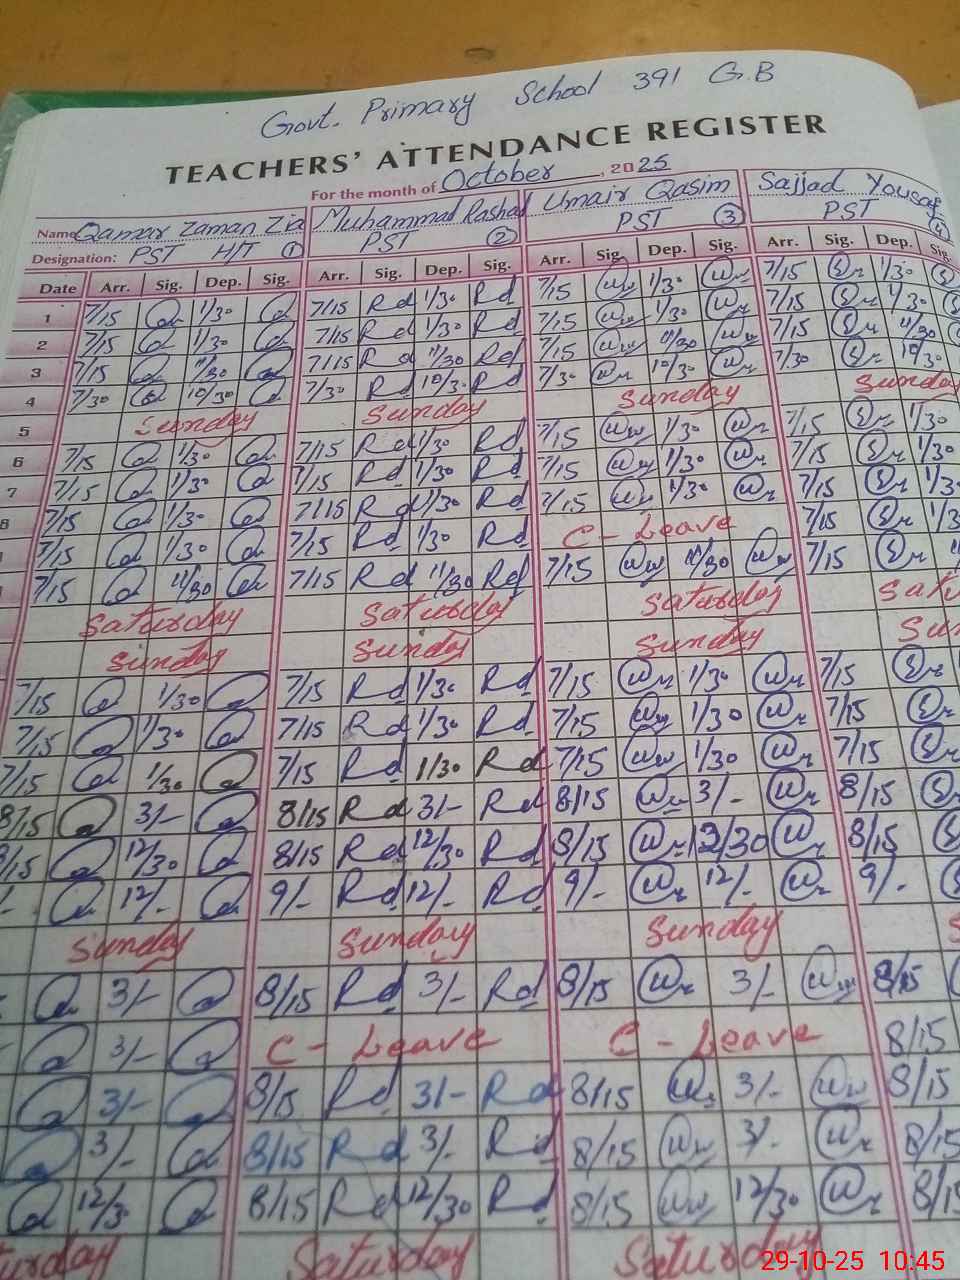 Govt. Primary School 391 G.B
TEACHERS' ATTENDANCE REGISTER
For the month of October, 2025
Name Qamar Zaman Zia Muhammad Rashad Umair Qasim Sajjad Yousaf
Designation: PST H/T 1 PST 2 PST 3 PST 4
Date Arr. Sig. Dep. Sig. Arr. Sig. Dep. Sig. Arr. Sig. Dep. Sig. Arr. Sig. Dep. Sig.
1 7/15 1/30 7/15 Rd 1/30 Rd 7/15 1/30 7/15 1/30
2 7/15 1/30 7/15 Rd 1/30 Rd 7/15 1/30 7/15 1/30
3 7/15 11/30 7/15 Rd 11/30 Rd 7/15 11/30 7/15 11/30
4 7/30 10/30 7/30 Rd 10/30 Rd 7/30 10/30 7/30 10/30
5 Sunday Sunday Sunday Sunday
6 7/15 1/30 7/15 Rd 1/30 Rd 7/15 1/30 7/15 1/30
7 7/15 1/30 7/15 Rd 1/30 Rd 7/15 1/30 7/15 1/30
8 7/15 1/30 7/15 Rd 1/30 Rd 7/15 1/30 7/15 1/3
7/15 1/30 7/15 Rd 1/30 Rd C - Leave 7/15 1/3
7/15 11/30 7/15 Rd 11/30 Rd 7/15 11/30 7/15
Saturday Saturday Saturday Satu
Sunday Sunday Sunday Sun
7/15 1/30 7/15 Rd 1/30 Rd 7/15 1/30 7/15
7/15 1/30 7/15 Rd 1/30 Rd 7/15 1/30 7/15
7/15 1/30 7/15 Rd 1/30 Rd 7/15 1/30 7/15
8/15 3/- 8/15 Rd 3/- Rd 8/15 3/- 8/15
8/15 12/30 8/15 Rd 12/30 Rd 8/15 12/30 8/15
12/- 9/- Rd 12/- Rd 9/- 12/- 9/-
Sunday Sunday Sunday S
3/- 8/15 Rd 3/- Rd 8/15 3/- 8/15
3/- C - Leave C - Leave 8/15
3/- 8/15 Rd 3/- Rd 8/15 3/- 8/15
3/- 8/15 Rd 3/- Rd 8/15 3/- 8/15
12/30 8/15 Rd 12/30 Rd 8/15 12/30 8/15
turday Saturday Saturday
29-10-25 10:45